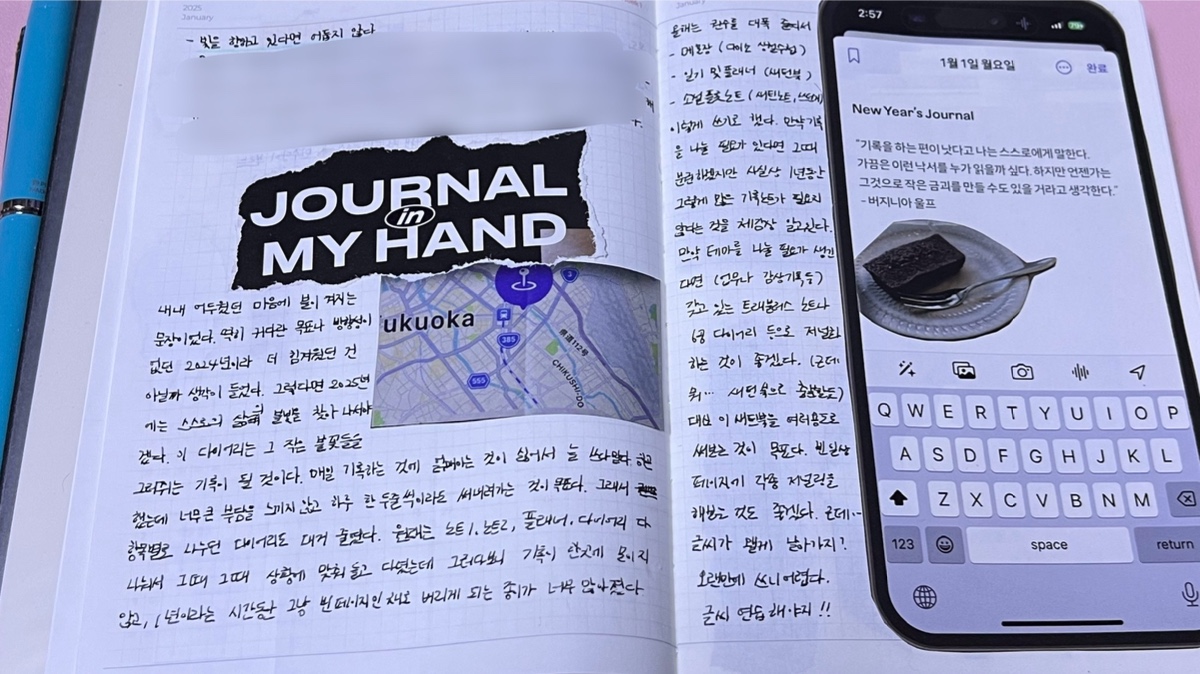 2025
January
- 빛을 향하고 있다면 어둡지 않다
JOURNAL
in
MY HAND
ukuoka
385
555
3
県道112号
CHIKUSHI-DO
내내 어두웠던 마음에 불이 켜지는
문장이었다. 딱히 커다란 목표나 방향성이
없던 2024년이라 더 침체됐던 건
아닐까 생각이 들었다. 그렇다면 2025년
에는 스스로의 삶에 불빛을 찾아 나서야
겠다. 이 다이어리는 그 작은 불꽃들을
그러쥐는 기록이 될 것이다. 매일 기록하는 것에 얽매이는 것이 싫어서 늘
했는데 너무 큰 부담을 느끼지 않고 하루 한두줄씩이라도 써내려가는 것이 목표다. 그래서
항목별로 나누던 다이어리도 대거 줄였다. 원래는 노트1, 노트2, 플래너, 다이어리 다
나눠서 그때 그때 상황에 맞춰 들고 다녔는데 그러다보니 기록이 한곳에 모이지
않고, 1년이라는 시간동안 그냥 빈 페이지인 채로 버리게 되는 종이가 너무 많아졌다
January
올해는 권수를 대폭 줄여서
- 메모장 (다이소 상철수첩)
- 일기 및 플래너 (세컨북)
이렇게 쓰기로 했다. 만약 기록
을 나눌 필요가 있다면 그때
분권하겠지만 사실상 1년동안
그렇게 많은 기록노트가 필요치
않다는 것을 체감상 알고있다.
만약 테마를 나눌 필요가 생긴
다면 (업무나 감상기록 등)
갖고 있는 트래블러스 노트나
6공 다이어리 등으로 저널링
하는 것이 좋겠다. (근데
뭐... 세컨북으로 충분할듯)
대신 이 세컨북을 여러용도로
써보는 것이 목표다. 빈 일상
페이지에 각종 저널링을
해보는 것도 좋겠다. 근데..
글씨가 왤케 날아가지?
오랜만에 쓰니 어렵다.
글씨 연습 해야지!!
2:57
79
1월 1일 월요일
완료
New Year's Journal
"기록을 하는 편이 낫다고 나는 스스로에게 말한다.
가끔은 이런 낙서를 누가 읽을까 싶다. 하지만 언젠가는
그것으로 작은 금괴를 만들 수도 있을 거라고 생각한다."
- 버지니아 울프
Q W E R T Y U I O P
A S D F G H J K L
Z X C V B N M
123 space return